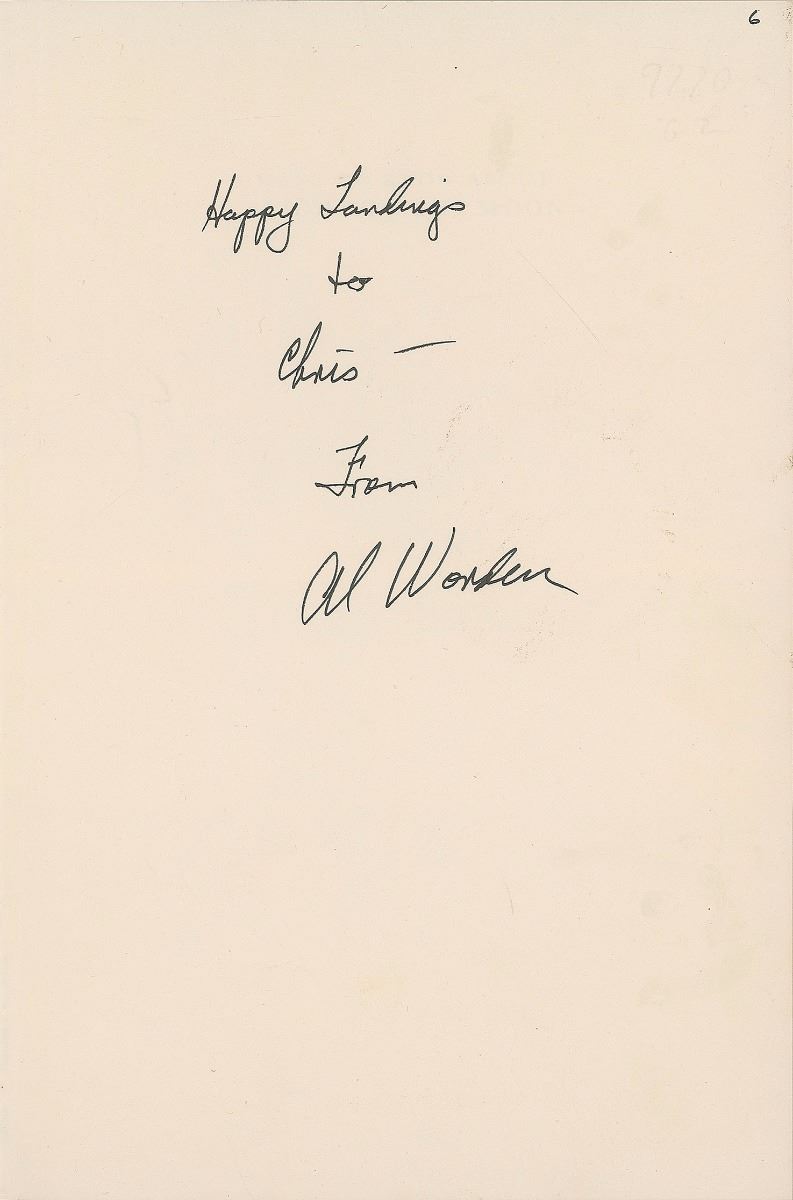 6
9770
G 2
Happy Landings
to
Chris —
From
Al Worden